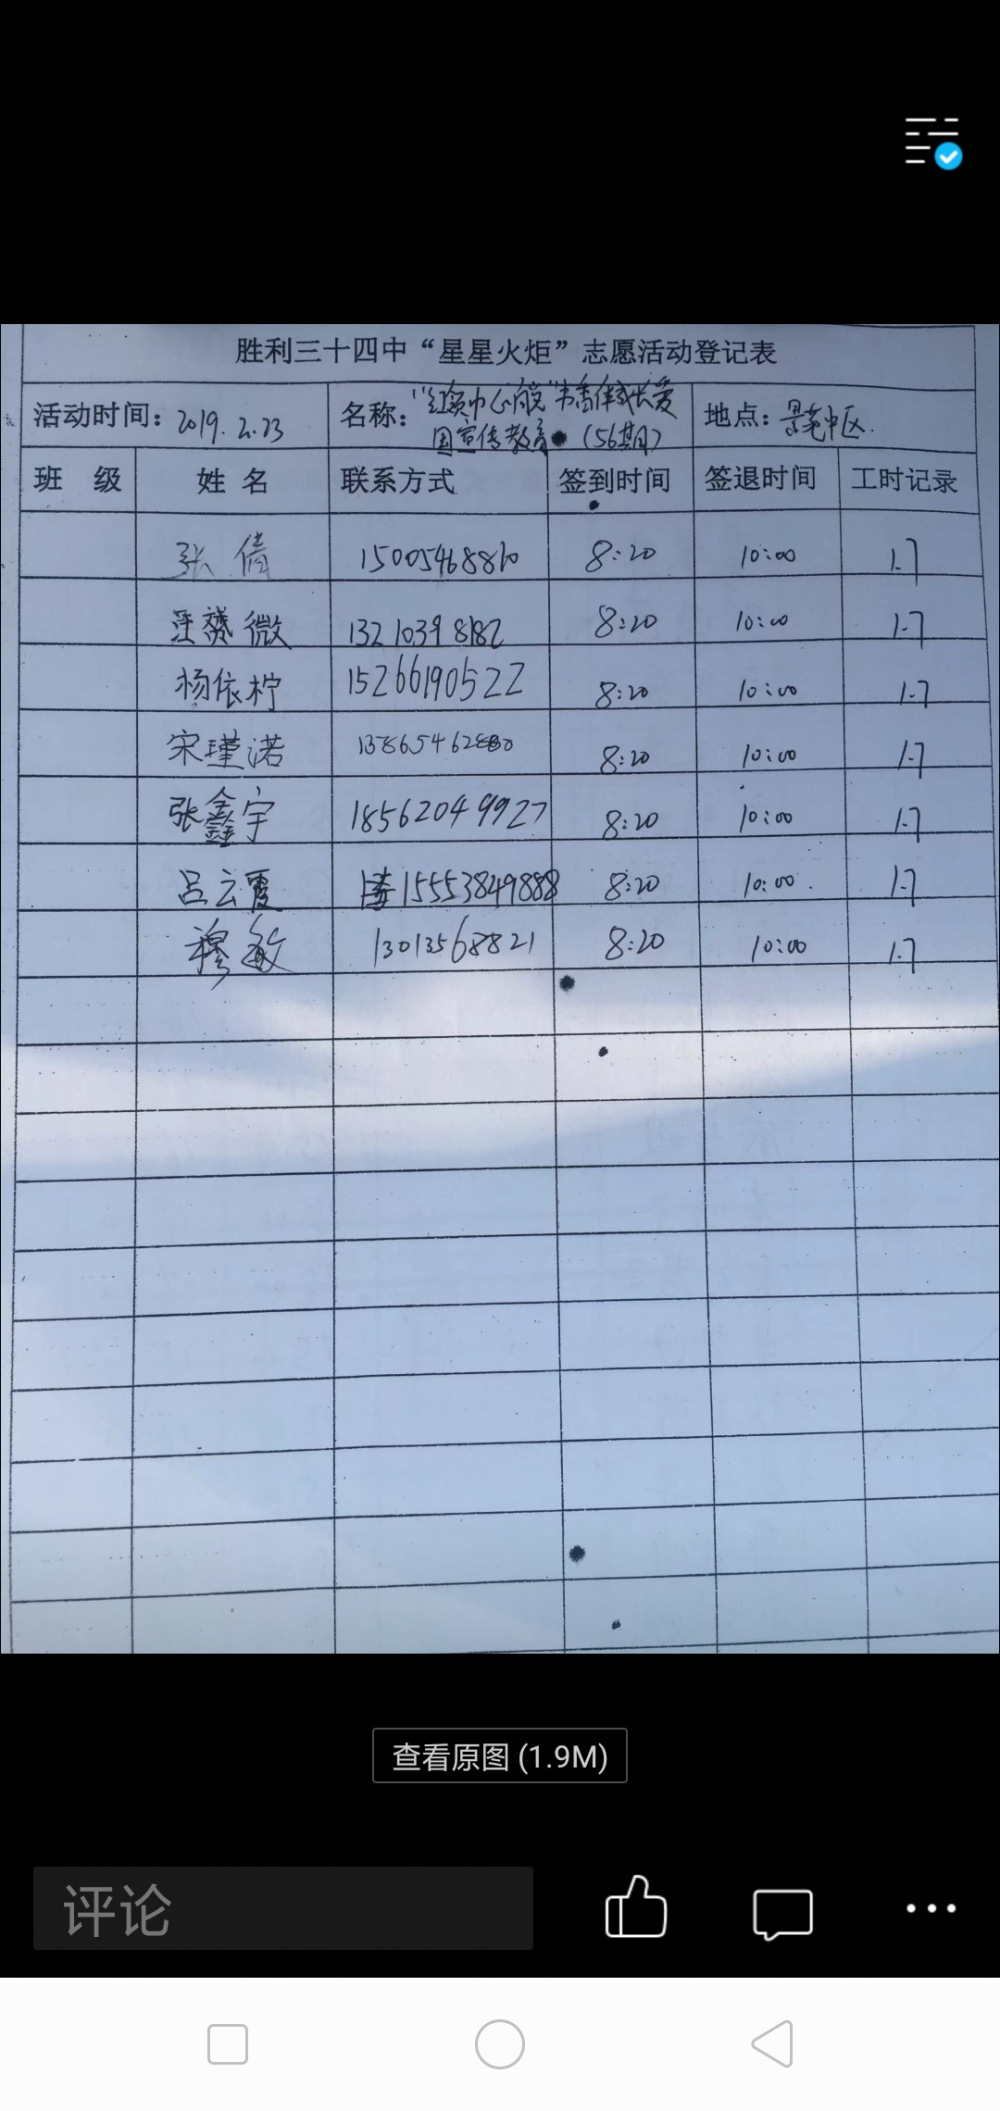 胜利三十四中“星星火炬”志愿活动登记表
活动时间：2019.2.23 名称：“红领巾心向党”书香伴成长爱 地点：景苑中区.
国宣传教育（56期）
班 级 姓 名 联系方式 签到时间 签退时间 工时记录
张倩 15005468810 8:20 10:00 1.7
微 13210398182 8:20 10:00 1.7
杨依柠 15266190522 8:20 10:00 1.7
宋瑾诺 8:20 10:00 1.7
张鑫宇 18562049927 8:20 10:00 1.7
吕云霞 15553849888 8:20 10:00 1.7
穆敏 13013568821 8:20 10:00 1.7
查看原图 (1.9M)
评论